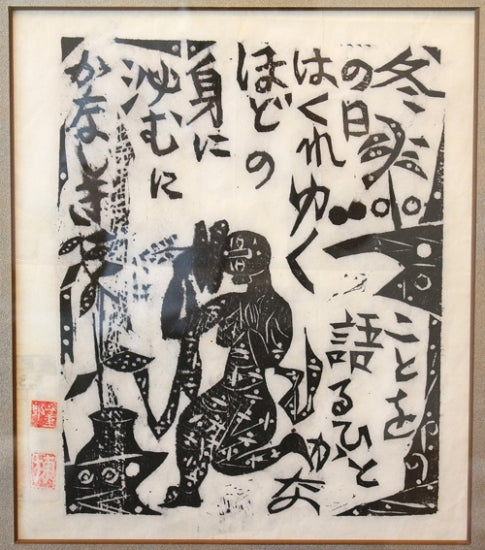 冬
の日
はくれゆく
ほどの
身に
泌むに
かなしき
ことを
語るひと
かな